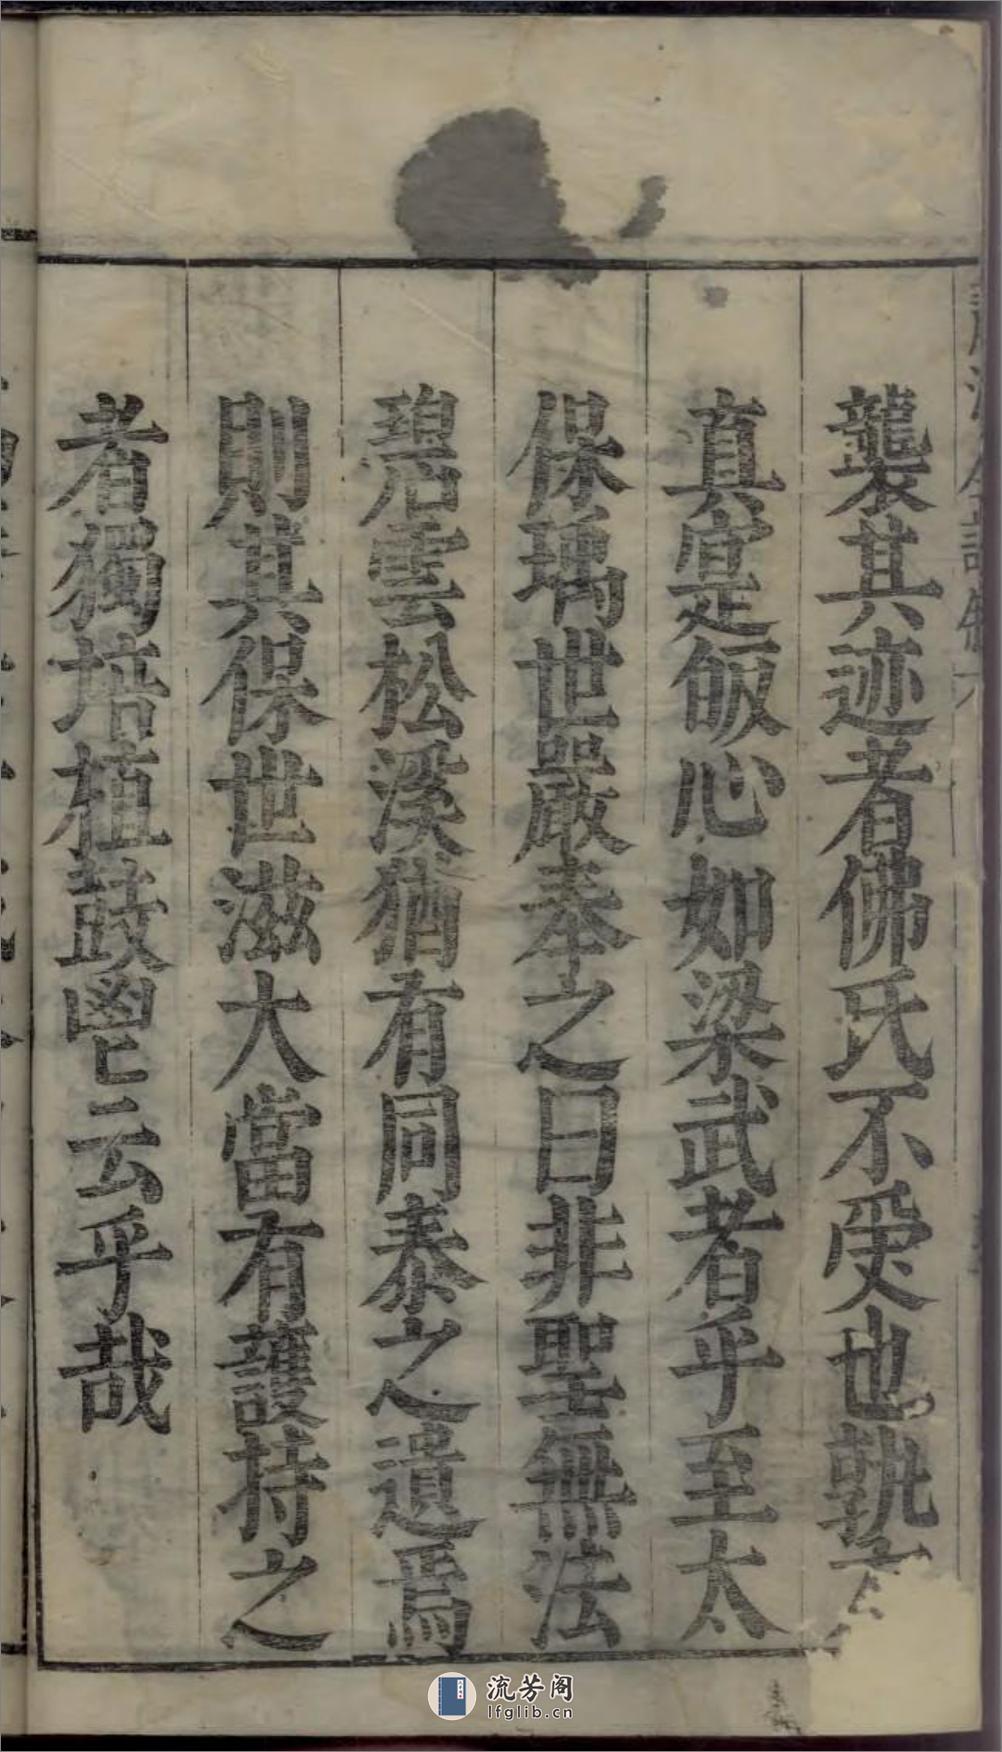 襲其迹者佛氏不受也孰云
真寔皈心如梁武者乎至太
保瑀世嚴奉之曰非聖無法
碧雲松溪猶有同泰之遺焉
則其保世滋大當有護持之
者獨培植鼓鬯云乎哉
流芳阁
lfglib.cn